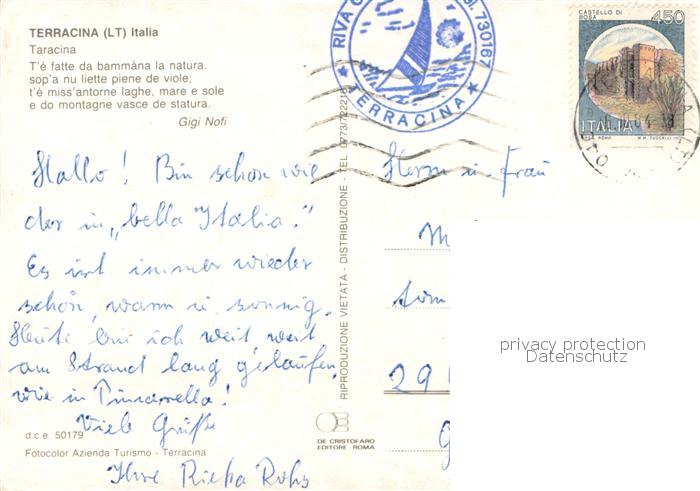 TERRACINA (LT) Italia
Taracina
T'è fatte da bammàna la natura.
sop'a nu liette piene de viole;
t'é miss'antorne laghe, mare e sole
e do montagne vasce de statura.
Gigi Nofi
RIVA
Tel. 730167
TERRACINA
CASTELLO DI
ROSA
450
ITALIA
Hallo! Bin schon wie
der in „bella Italia."
Es ist immer wieder
schön, warm u. sonnig.
Heute bin ich weit, weit
am Strand lang gelaufen,
wie in Pinarella!
Viele Grüße
Ihre
Herrn u. Frau
29
privacy protection
Datenschutz
RIPRODUZIONE VIETATA - DISTRIBUZIONE - TEL. 0773/722216
DE CRISTOFARO
EDITORE ROMA
d.c.e. 50179
Fotocolor Azienda Turismo - Terracina